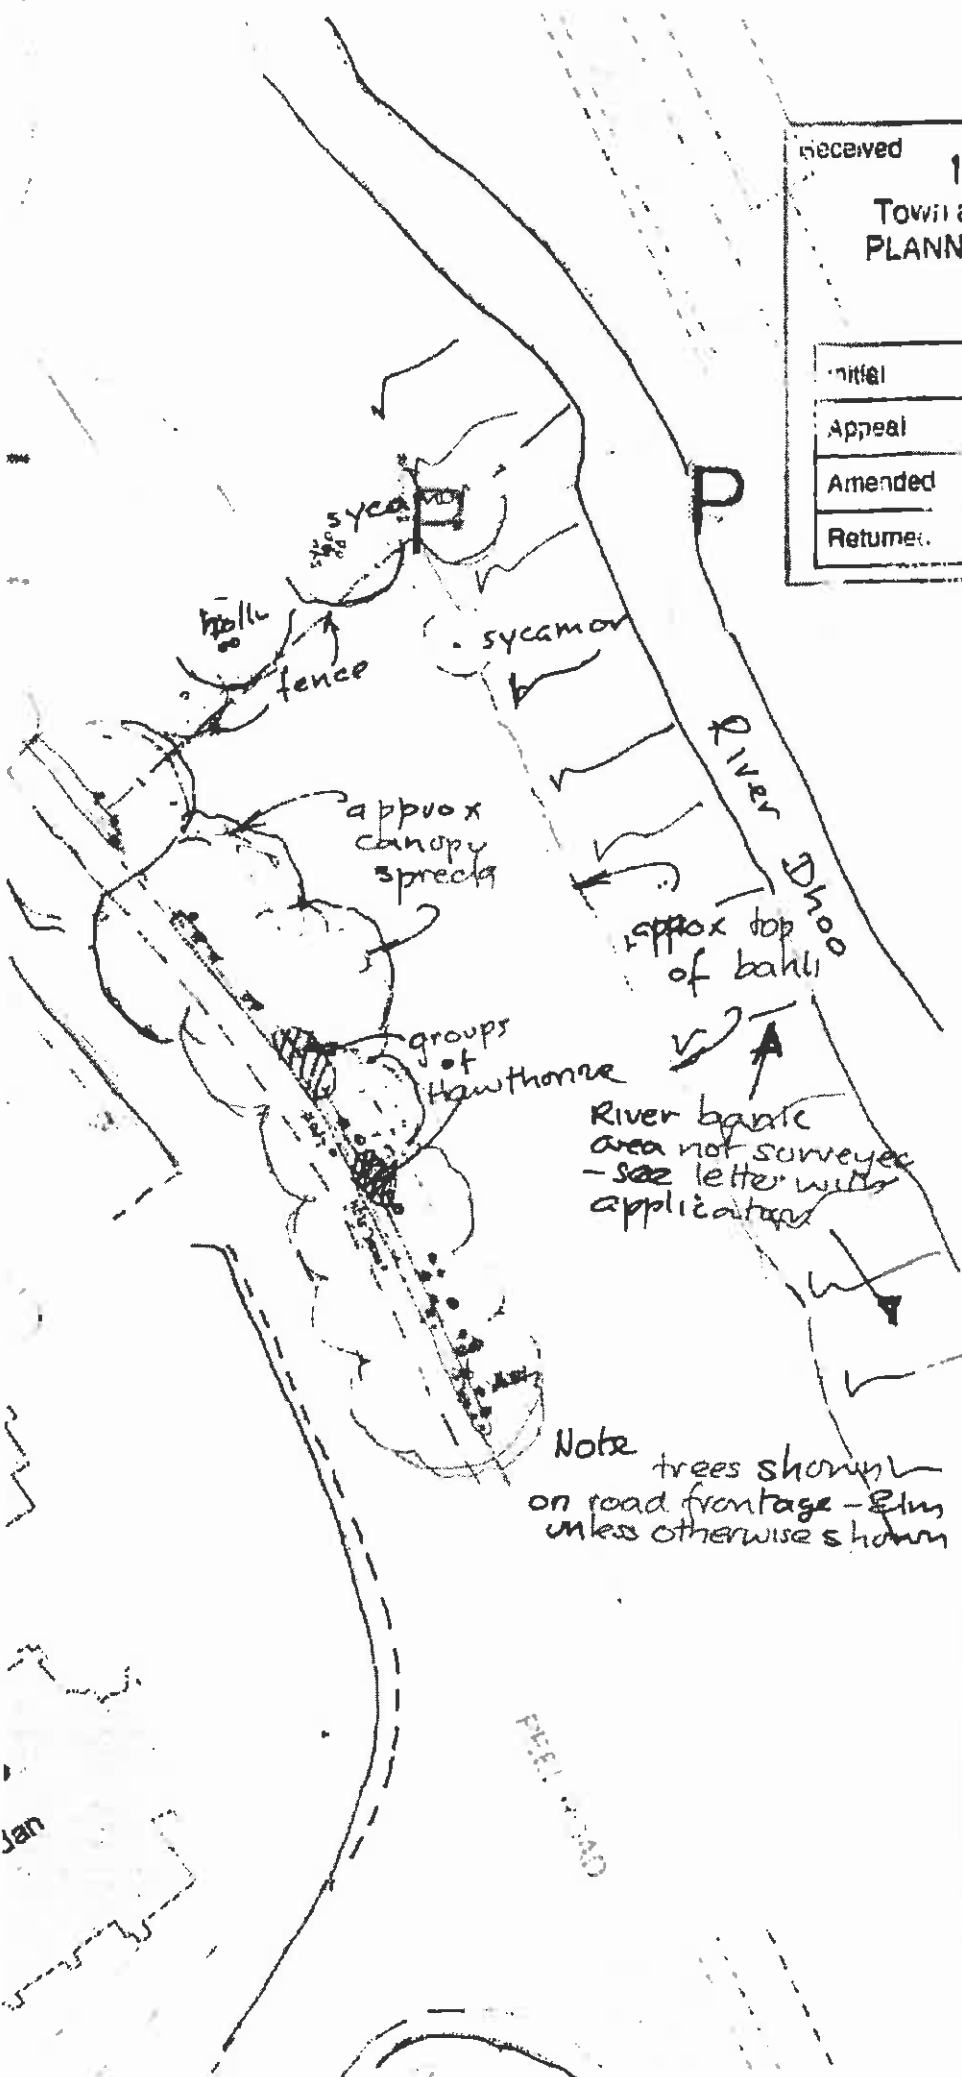 Received 1
Town a
PLANN
Initial
Appeal
Amended
Returned
P
sycamor
fence
sycamor
River Dhoo
approx
canopy
spread
approx top
of bank
groups
of
Hawthorne
River bank
area not surveyed
- see letter with
application
Ash
Note trees shown
on road frontage - Elm
unless otherwise shown
PEEL ROAD
dan